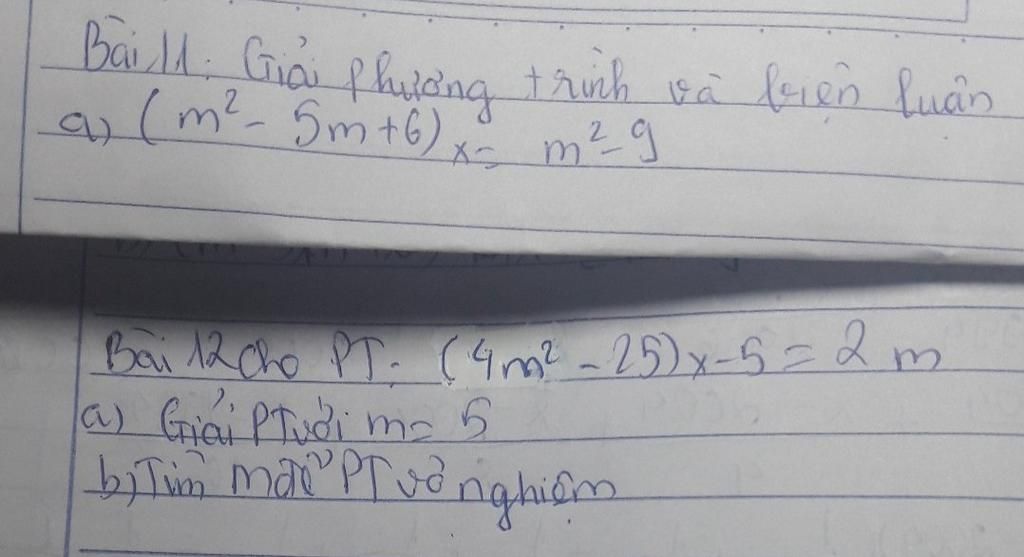 Bài 11. Giải phương trình và biện luân
a) (m² - 5m + 6) x = m² - 9
Bài 12 cho PT. (4m² - 25)x - 5 = 2 m
a) Giải PT với m = 5
b) Tìm m để PT vô nghiệm